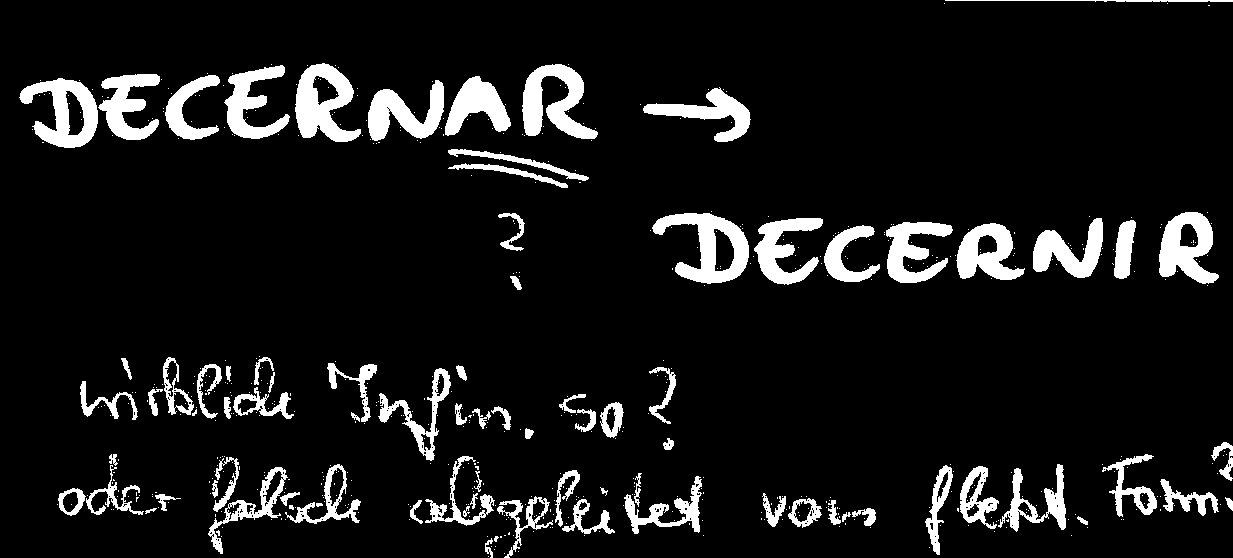 DECERNAR →
?
DECERNIR
wirklich Infin. so?
oder falsch abgeleitet von flekt. Form?